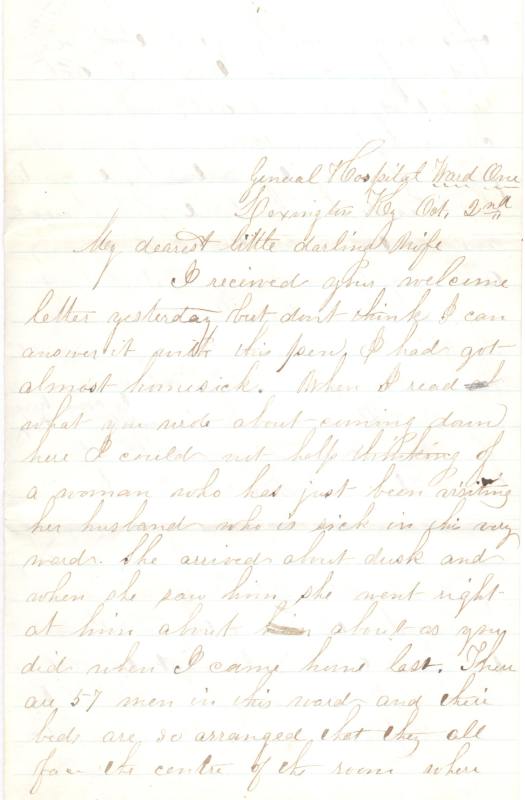 General Hospital Ward One
Lexington Ky Oct. 2nd
My dearest little darling Wife
I received your welcome
letter yesterday but dont think I can
answer it with this pen. I had got
almost homesick. When I read
what you wrote about coming down
here I could not help thinking of
a woman who has just been visiting
her husband who is sick in this very
ward. She arrived about dusk and
when she saw him she went right
at him about him about as you
did when I came home last. There
are 57 men in this ward and their
beds are so arranged that they all
face the centre of the room where